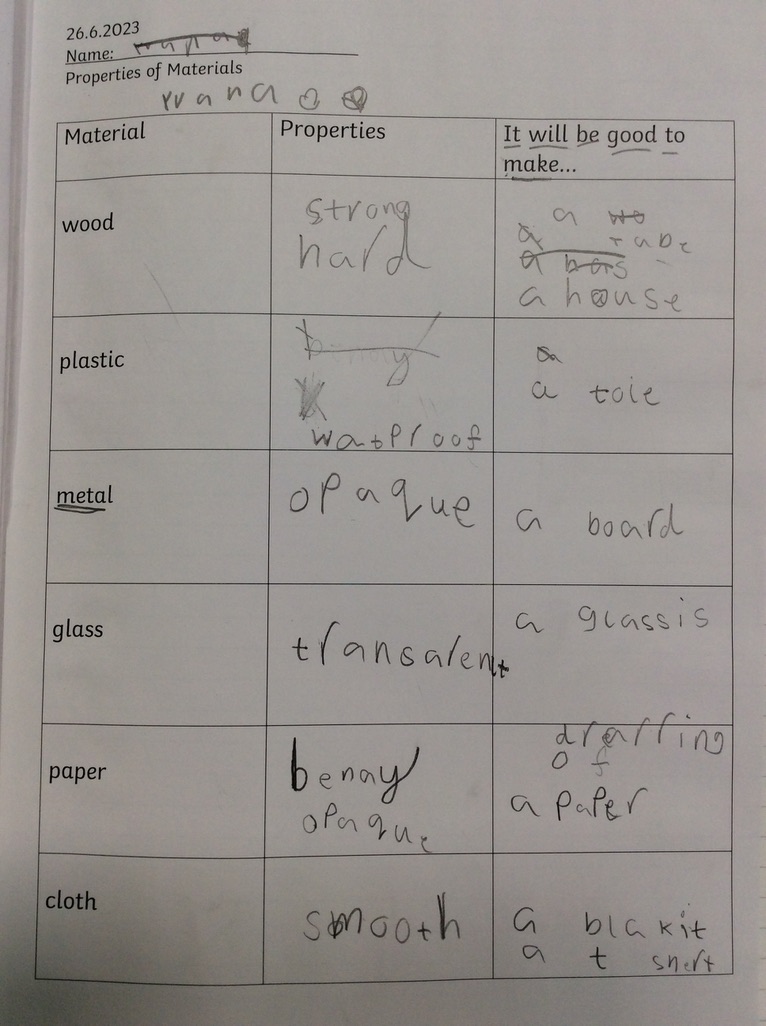 26.6.2023
Name:
Properties of Materials
Material Properties It will be good to
make...
wood
strong
hard
a
a tabe
a house
plastic
watProof
a toie
metal
opaque
a board
glass
transalent
a glassis
paper
benay
opaque
drarring
of
a paper
cloth
smooth
a blakit
a t shert